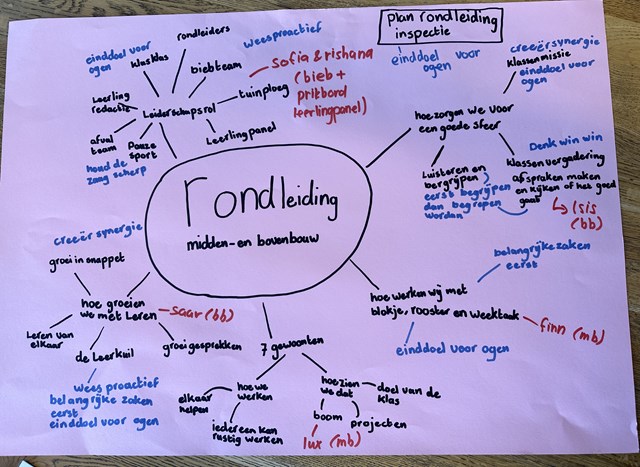 plan rondleiding
inspectie
einddoel voor
ogen
rondleiders
wees proactief
einddoel voor
ogen
klasklas
biebteam
Sofia & rishana
(bieb +
prikbord
leerlingpanel)
tuinploeg
Leerling
redactie
Leiderschapsrol
afval
team
Pauze
sport
houd de
zaag scherp
Leerlingpanel
creeër synergie
klassenmissie
einddoel voor
ogen
hoe zorgen we voor
een goede sfeer
Denk win win
klassenvergadering
afspraken maken
en kijken of het goed
gaat
Isis
(bb)
Luisteren en
begrijpen
eerst begrijpen
dan begrepen
worden
rondleiding
midden- en bovenbouw
creeër synergie
groei in snappet
hoe groeien
we met Leren
saar (bb)
Leren van
elkaar
de Leerkuil
groeigesprekken
wees proactief
belangrijke zaken
eerst
einddoel voor ogen
7 gewoonten
hoe we
werken
elkaar
helpen
iedereen kan
rustig werken
hoe zien
we dat
doel van de
klas
boom
projecten
lux (mb)
belangrijke zaken
eerst
hoe werken wij met
blokje, rooster en weektaak
finn (mb)
einddoel voor ogen